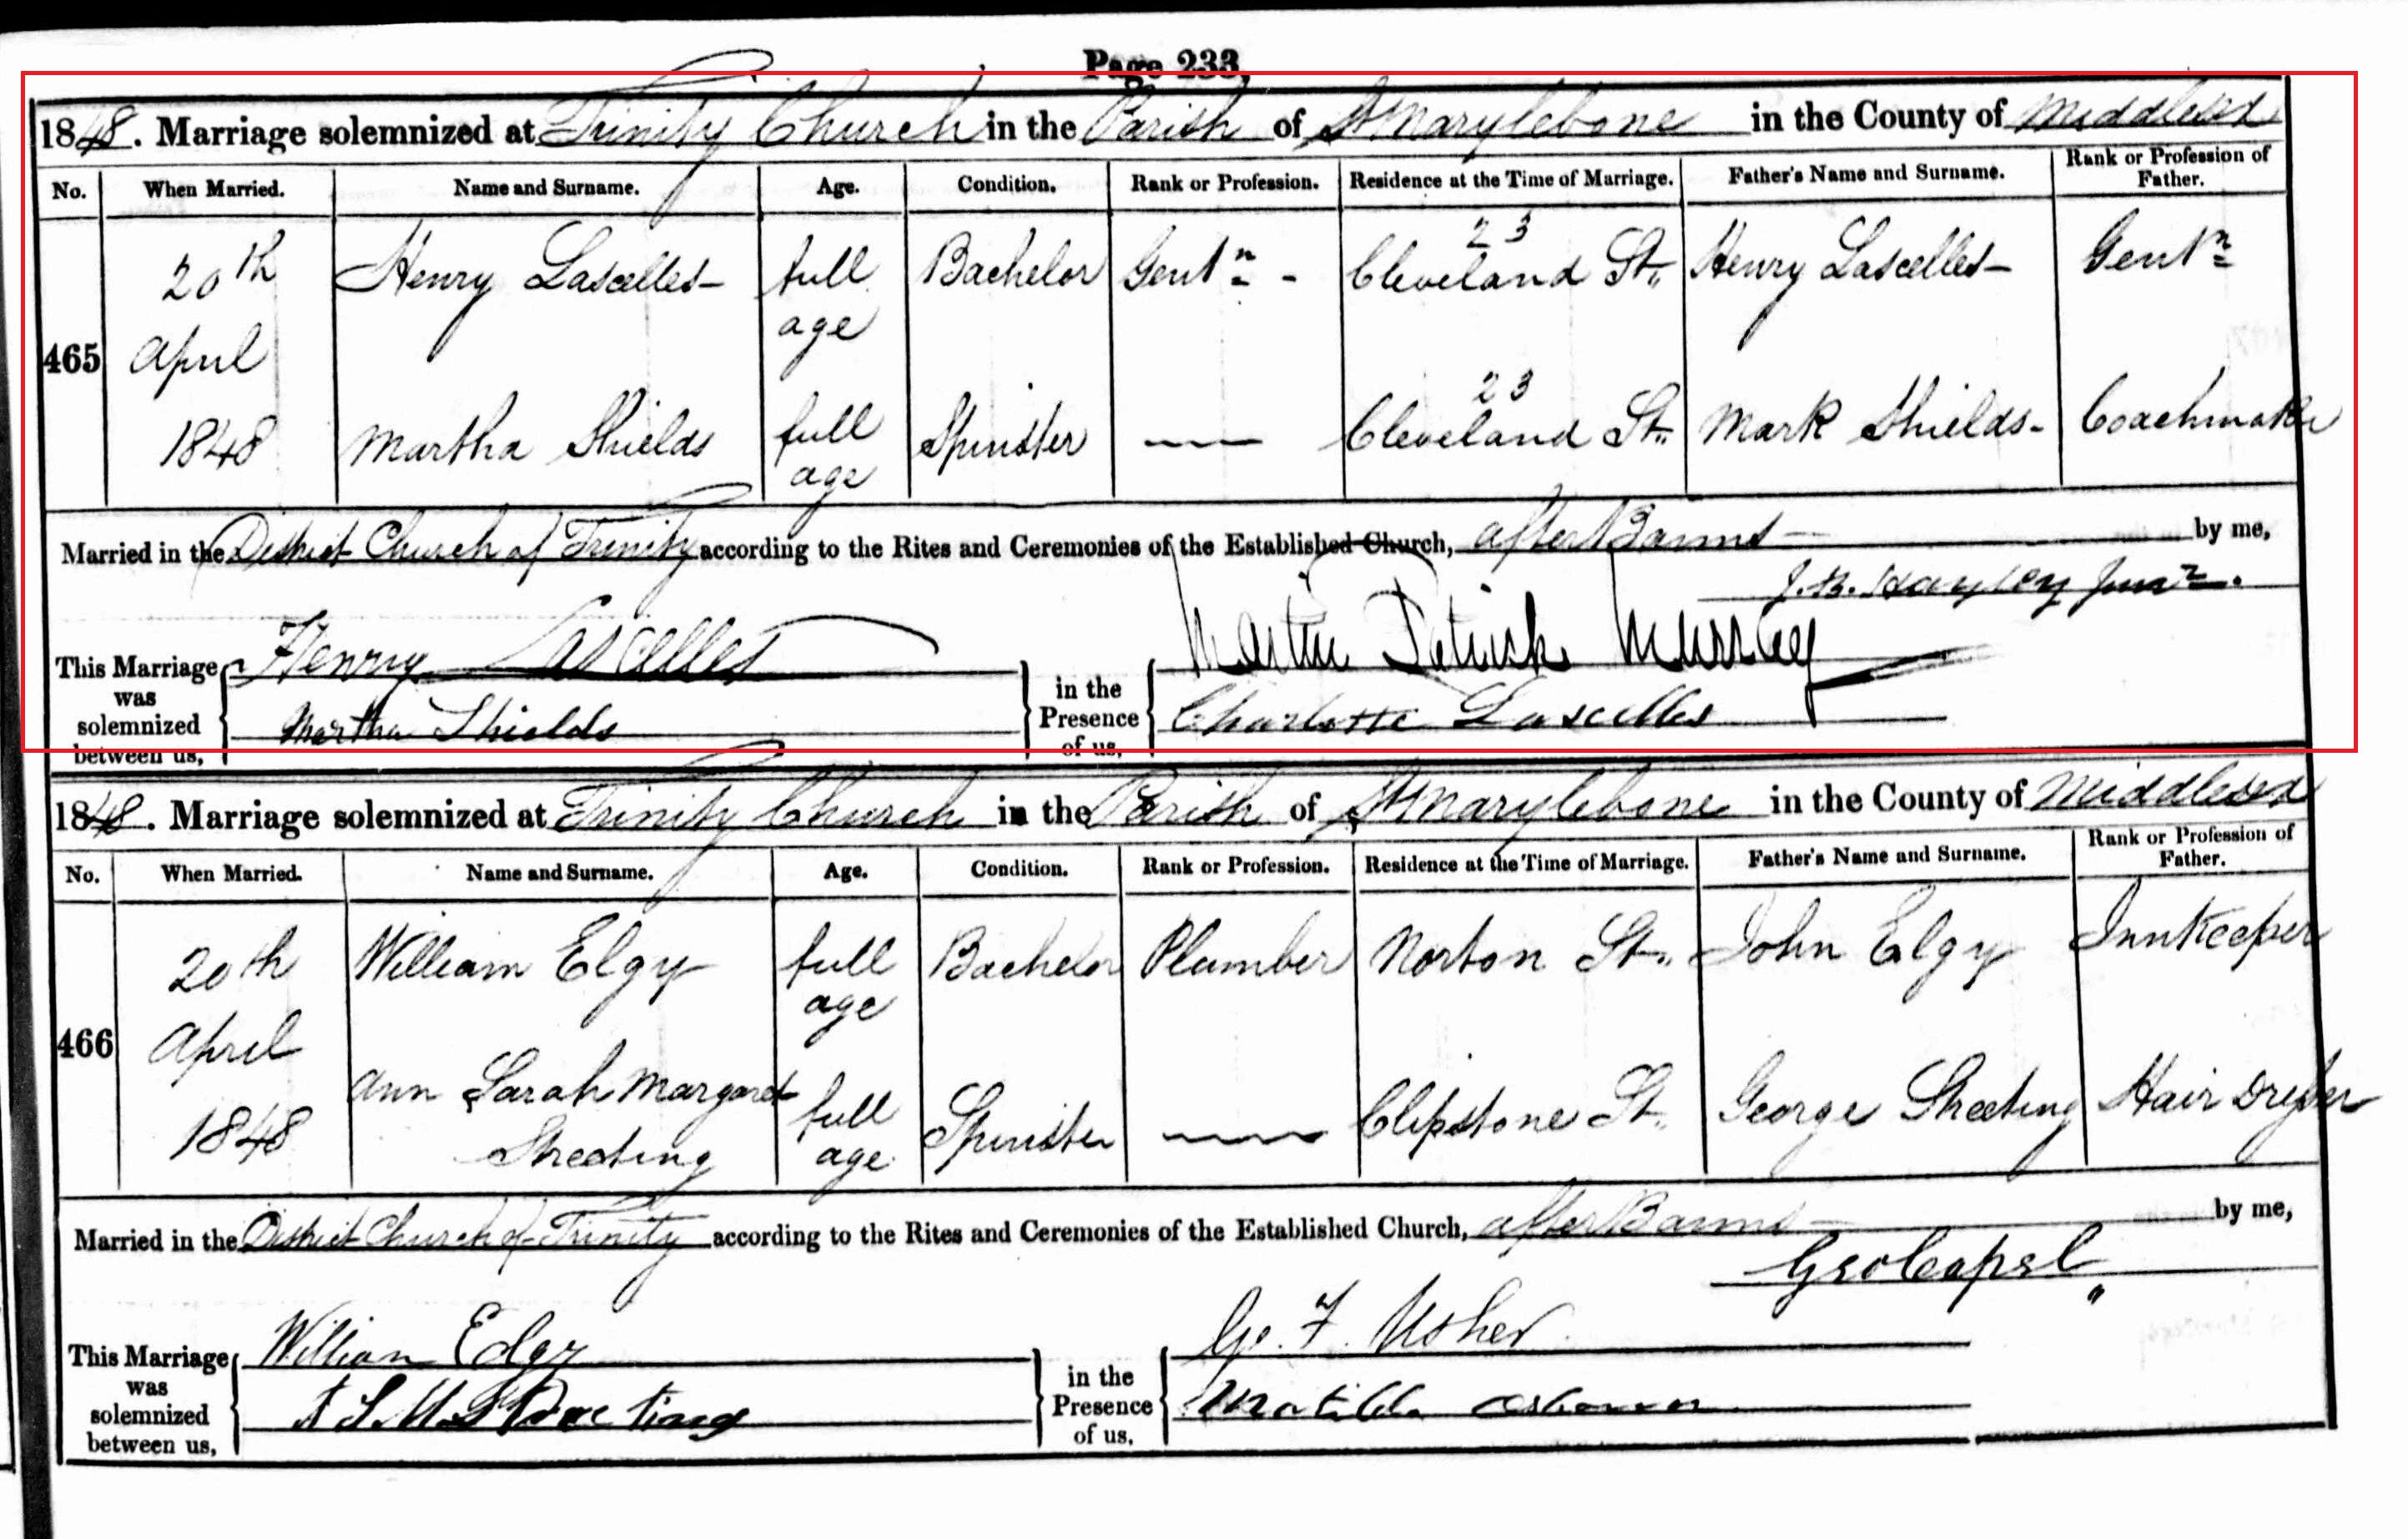 Page 233.
1848. Marriage solemnized at Trinity Church in the Parish of St Marylebone in the County of Middlesex
No. When Married. Name and Surname. Age. Condition. Rank or Profession. Residence at the Time of Marriage. Father's Name and Surname. Rank or Profession of Father.
465 20th April 1848 Henry Lascelles full age Bachelor Gentn 23 Cleveland St. Henry Lascelles Gentn
Martha Shields full age Spinster 23 Cleveland St. Mark Shields Coachmaker
Married in the District Church of Trinity according to the Rites and Ceremonies of the Established Church, after Banns by me,
J. B. Hayley Junr.
This Marriage was solemnized between us, Henry Lascelles Martha Shields in the Presence of us, Martin Patrick Murray Charlotte Lascelles
1848. Marriage solemnized at Trinity Church in the Parish of St Marylebone in the County of Middlesex
No. When Married. Name and Surname. Age. Condition. Rank or Profession. Residence at the Time of Marriage. Father's Name and Surname. Rank or Profession of Father.
466 20th April 1848 William Elgy full age Bachelor Plumber Norton St. John Elgy Innkeeper
Ann Sarah Margaret Skeeting full age Spinster Clipstone St. George Skeeting Hair Dresser
Married in the District Church of Trinity according to the Rites and Ceremonies of the Established Church, after Banns by me,
Geo Capel
This Marriage was solemnized between us, William Elgy A S M in the Presence of us, Go. F. Usher Matilda